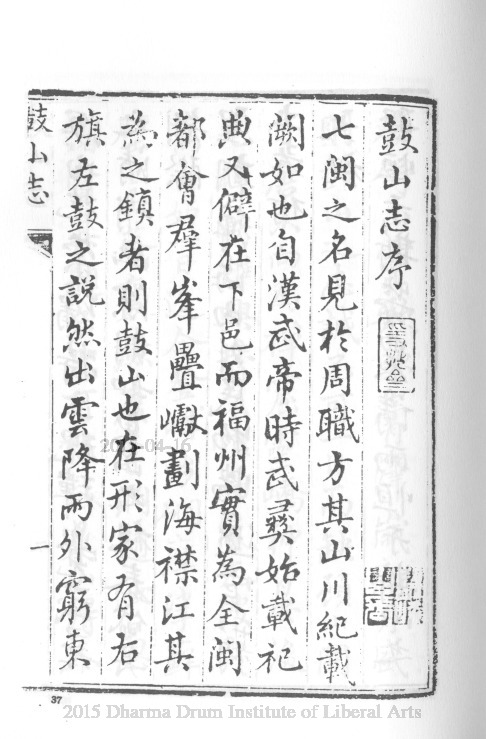 鼓山志序
七閩之名見於周職方其山川紀載
闕如也自漢武帝時武彛始載祀
典又僻在下邑而福州實為全閩
都會羣峯疊巘劃海襟江其
為之鎮者則鼓山也在形家有右
旗左鼓之說然出雲降雨外窮東
鼓山志
一
37
2015 Dharma Drum Institute of Liberal Arts